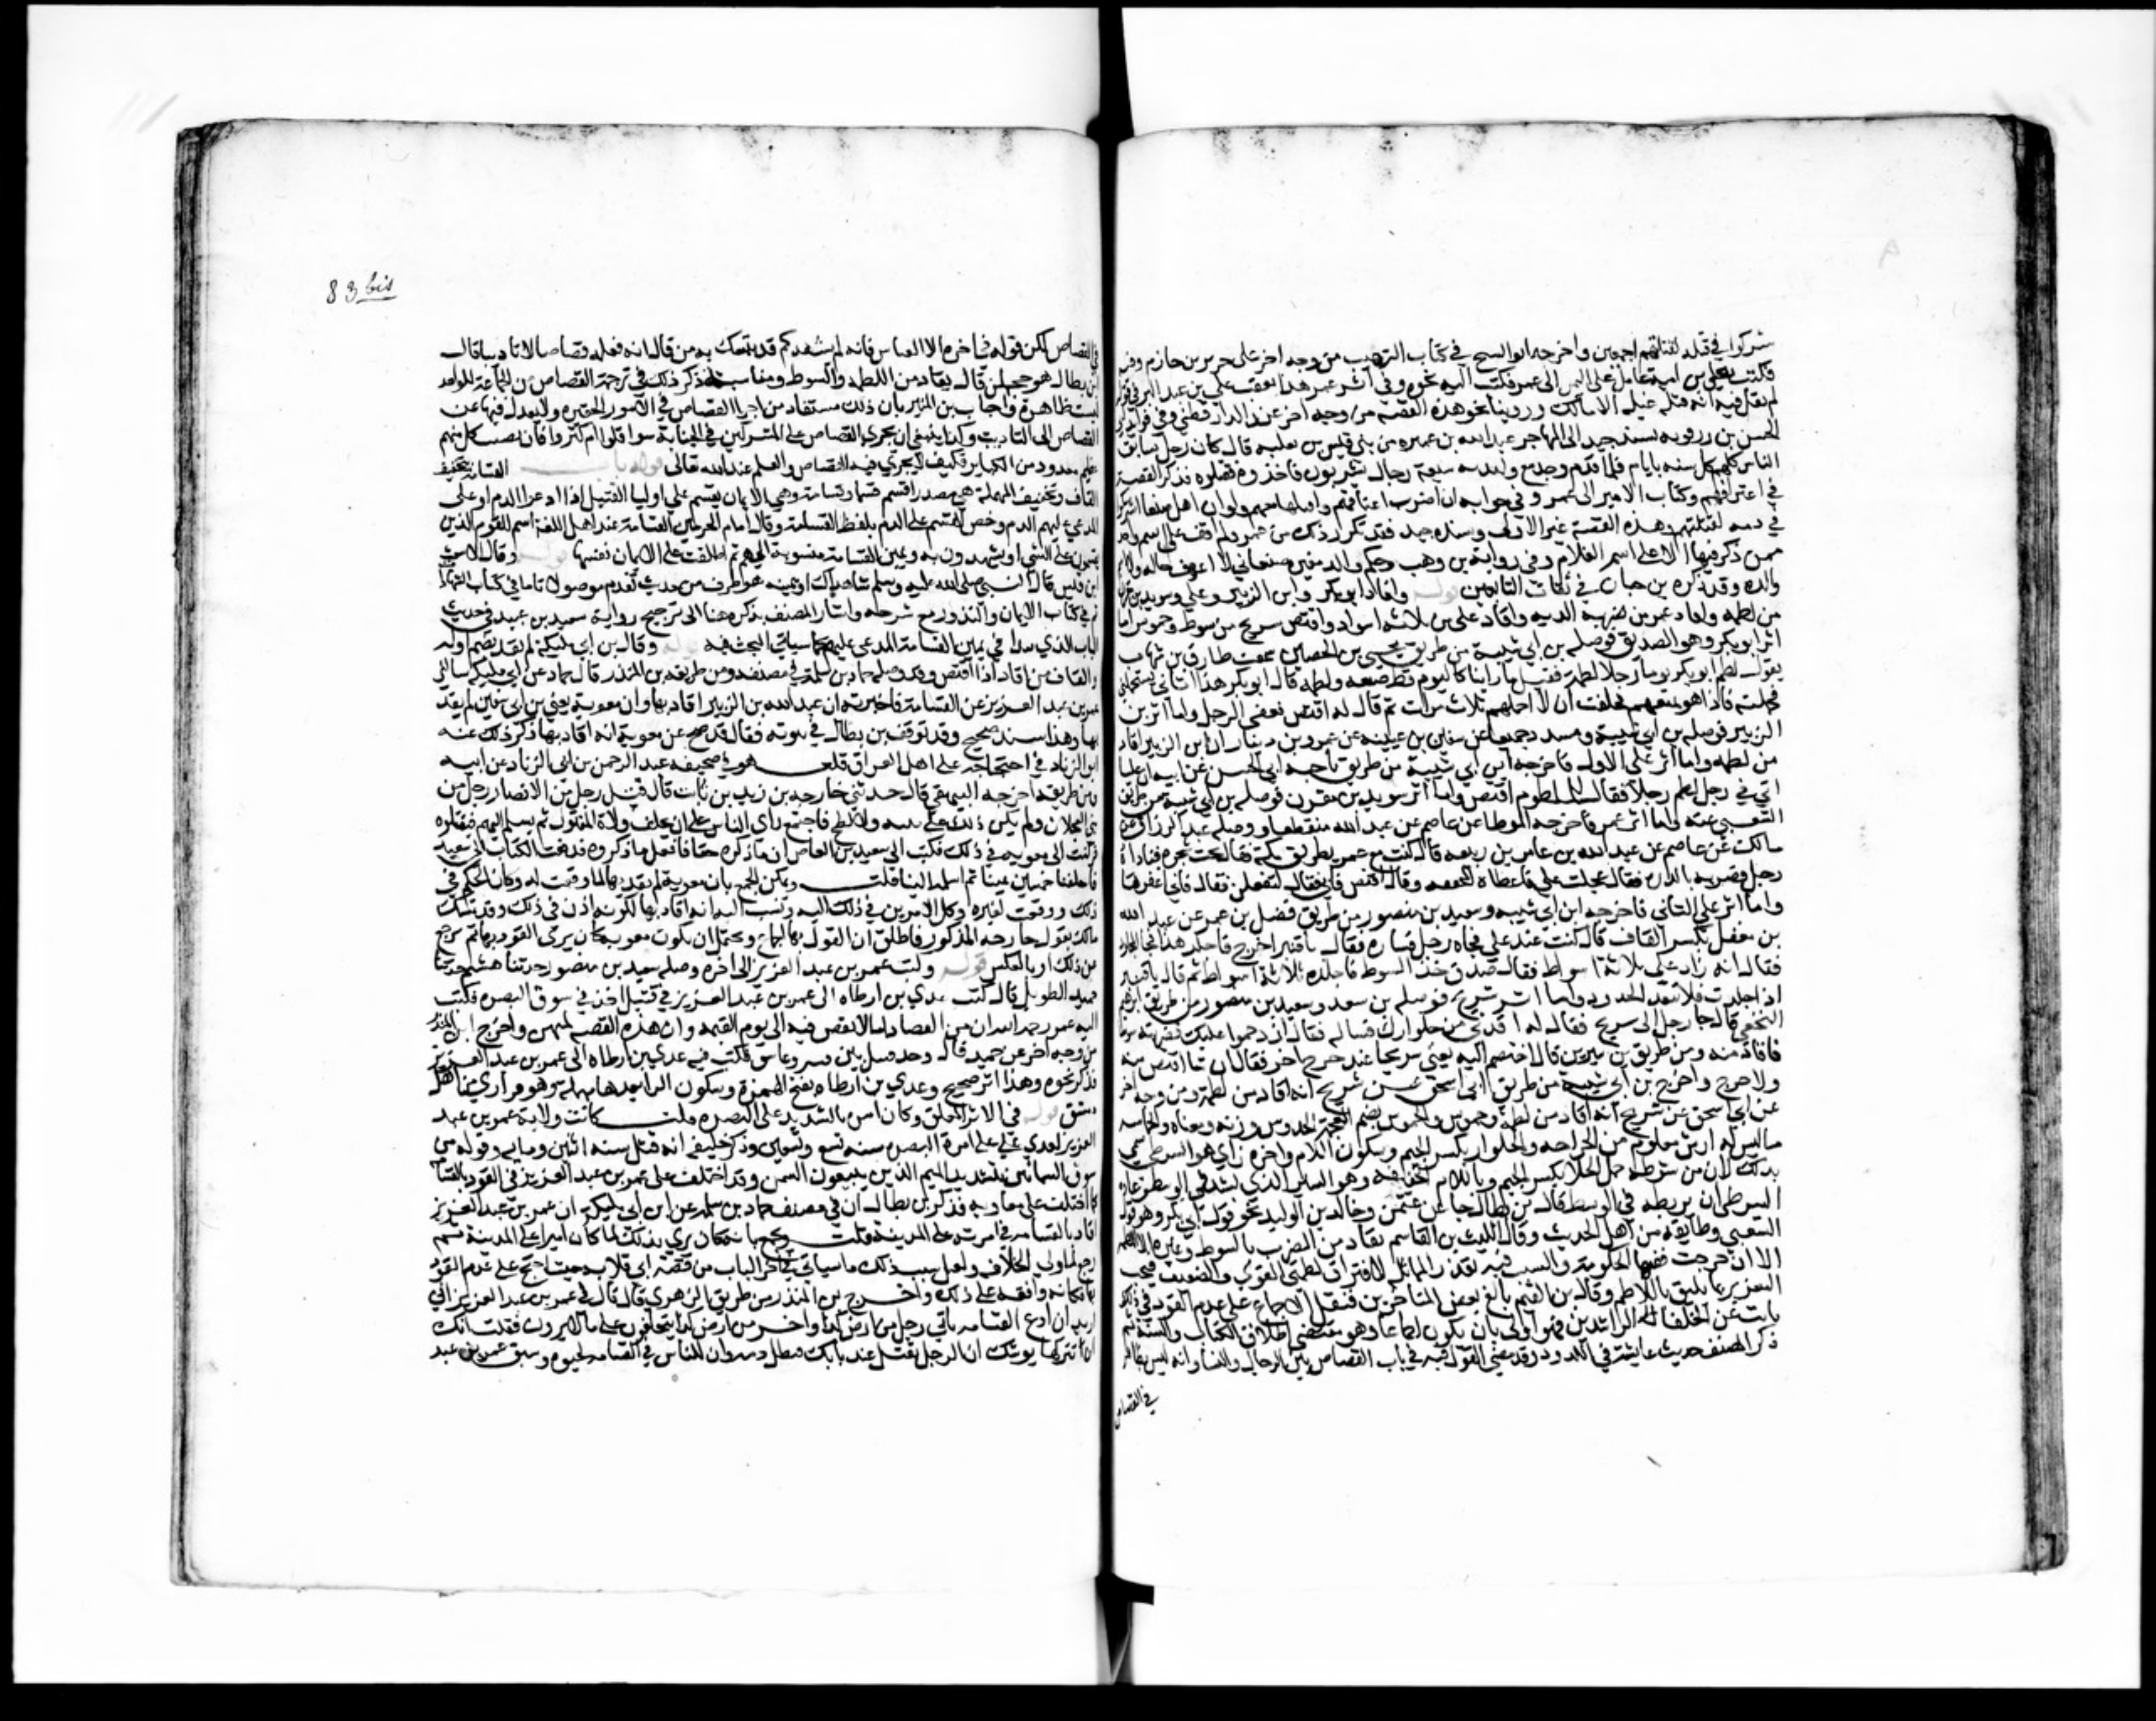 شركوا في قتله لقتلتهم اجمعين واخرجه ابو الشيخ في كتاب الترهيب من وجه اخر عن جرير بن حازم وفيه
فكتب يعلى بن امية عامل على اليمن الى عمر فكتب اليه نحوه وفي اثر عمر هذا تعقب على بن عبد البر في قوله
لم يقل فيه انه قتله غيلة الا مالك وروينا نحو هذه القصة من وجه اخر عند الدارقطني وفي فوائد ابي
الحسن بن زرويه بسند جيد الى ابي المهاجر عبد الله بن عميره من بني قيس بن ثعلبه قال كان رجل يسابق
الناس كلهم كل سنه بايام فلما قدم وجد مع وليدته سبعة رجال يشربون فاخذوه فقتلوه فذكر القصة
في اعترافهم وكتاب الامير الى عمر وفي جوابه ان اضرب اعناقهم واقتلها معهم ولو ان اهل صنعا اشتركوا
في دمه لقتلتهم وهذه القصة غير الاولى وسنده جيد فقد تكرر ذلك من عمر ولم اقف على اسم واحد
ممن ذكر فيها الا على اسم الغلام وفي رواية بن وهب وحكيم والد المغيرة صنعاني لا اعرف حاله ولا اسم
والده وقد ذكره بن حبان في ثقات التابعين قوله واقاد ابو بكر وابن الزبير وعلي وسويد بن مقرن
من لطمه واقاد عمر من ضربه بالدره واقاد علي من ثلاثه اسواط واقتص شريح من سوط وخموش اما
اثر ابو بكر وهو الصديق فوصله بن ابي شيبة من طريق يحيى بن الحصين سمعت طارق بن شهاب
يقول لطم ابو بكر يوما رجلا لطمة فقيل ما راينا كاليوم قط ضيعه ولطمه قال ابو بكر هذا اتاني يستحملني
فحملته فاذا هو يتبعهم فحلفت ان لا احملهم ثلاث مرات ثم قال له اقتص فعفى الرجل واما اثر بن
الزبير فوصله بن ابي شيبة ومسدد جميعا عن سفين بن عيينه عن عمرو بن دينار ان ابن الزبير اقاد
من لطمه واما اثر علي الاول فاخرجه ابن ابي شيبة من طريق ناجية ابي الحسن عن ابيه ان عليا
اتي في رجل لطم رجلا فقال للملطوم اقتص واما اثر سويد بن مقرن فوصله بن ابي شيبة من طريق
الشعبي عنه واما اثر عمر فاخرجه الموطا عن عاصم عن عبد الله منقطعا ووصله عبد الرزاق عن
مالك عن عاصم عن عبد الله بن عامر بن ربيعه قال كنت مع عمر بطريق مكة فبال تحت شجرة فناداه
رجل فضربه بالدره فقال عجلت علي فاعطاه المخفقه وقال اقتص فابى فقال لتفعلن فقال فاني اغفرها
واما اثر علي الثاني فاخرجه ابن ابي شيبه وسعيد بن منصور من طريق فضيل بن عمر عن عبد الله
بن معقل بكسر القاف قال كنت عند علي فجاه رجل فساره فقال يا قنبر اخرج فاجلد هذا فجا المجلود
فقال انه زاد علي ثلاثة اسواط فقال صدق خذ السوط فاجلده ثلاثة اسواط ثم قال يا قنبر
اذا جلدت فلا تتعد الحدود واما اثر شريح فوصله بن سعد وسعيد بن منصور من طريق ابرهيم
النخعي قال جا رجل الى شريح فقال له اقدني من جلوازك فساله فقال ازدحموا عليك فضربته سوطا
فاقاده منه ومن طريق بن سيرين قال اختصم اليه يعني شريحا عبد جرح حر فقال ان شا اقتص منه
ولا حرج واخرج بن ابي شيبة من طريق ابي اسحق عن شريح انه اقاد من لطمة ومن وجه اخر
عن ابي اسحق عن شريح انه اقاد من لطمة وخموش والخموش بضم المعجمة الخدوش وزنه ومعناه والخماشه
ما ليس له ارش معلوم من الجراحه والجلواز بكسر الجيم وسكون اللام واخره زاي هو الشرطي سمي
بذلك لان من شرطه حمل الجلاز بكسر الجيم وباللام الخفيفه وهو السير الذي يشد في الوسط وعادة
الشرطي ان يربطه في الوسط قال بن بطال جا عن عثمن وخالد بن الوليد نحو قول ابي بكر وهو قول
الشعبي وطايفة من اهل الحديث وقال الليث بن القاسم يقاد من الضرب بالسوط وغيره الا اللطمة
الا ان جرحت ففيها الحكومة والسبب فيه تعذر المماثلة لافتراق لطمتي القوي والضعيف فيجب
التعزير بما يليق باللاطم وقال بن القيم بالغ بعض المتاخرين فنقل الاجماع على عدم القود في ذلك
ثابت عن الخلفا الراشدين فهو اولى بان يكون اجماعا وهو مقتضى اطلاق الكتاب والسنة ثم
ذكر المصنف حديث عايشة في اللدود وقد مضى القول فيه في باب القصاص بين الرجال والنسا وانه ليس بظاهر
في القصاص
83 bis
في القصاص لكن قوله في اخره الا العباس فانه لم يشهدكم قد يتمسك به من قال انه فعله قصاصا لا تاديبا قال
بن بطال هو حجة لمن قال يقاد من اللطمه والسوط ومناسبة ذكر ذلك في ترجمة القصاص من الجماعة للواحد
ليست ظاهرة واجاب بن المنير بان ذلك مستفاد من اجرا القصاص في الامور الحقيره ولا يعدل فيها عن
القصاص الى التاديب وكذا ينبغي ان يجري القصاص على المشتركين في الجناية سوا قلوا ام كثروا فان نصيب كل منهم
عظيم معدود من الكباير فكيف لا يجري فيه القصاص والعلم عند الله تعالى قوله باب القسامة بتخفيف
القاف وتخفيف المهملة هي مصدر اقسم قسما وقسامة وهي الايمان يقسم على اوليا القتيل اذا ادعوا الدم او على
المدعي عليهم الدم وخص القسم على الدم بلفظ القسامة وقال امام الحرمين القسامة عند اهل اللغة اسم للقوم الذين
يقسمون على الشي او يشهدون به ويمين القسامة منسوبة اليهم ثم اطلقت على الايمان نفسها قوله وقال الاشعث
ابن قيس قال النبي صلى الله عليه وسلم شاهداك او يمينه هو طرف من حديث تقدم موصولا تاما في كتاب الشهادات
ثم في كتاب الايمان والنذور مع شرحه واشار المصنف بذكره هنا الى ترجيح رواية سعيد بن عبيد في حديث
الباب الذي يبدا في يمين القسامة المدعى عليهم كما سياتي البحث فيه قوله وقال بن ابي مليكة لم يقد بضم اوله
والقاف من اقاد اذا اقتص وقد وصله حماد بن سلمة في مصنفه ومن طريقه بن المنذر قال حماد عن ابي مليكة سالني
عمر بن عبد العزيز عن القسامة فاخبرته ان عبد الله بن الزبير اقاد بها وان معوية يعني بن ابي سفين لم يقد
بها وهذا سند صحيح وقد توقف بن بطال في ثبوته فقال قد صح عن معوية انه اقاد بها ذكر ذلك عنه
ابو الزناد في احتجاجه على اهل العراق قلت هو في صحيفه عبد الرحمن بن ابي الزناد عن ابيه
ومن طريقه اخرجه البيهقي قال حدثني خارجه بن زيد بن ثابت قال قتل رجل من الانصار رجلا من
بني العجلان ولم يكن ذلك على بينه ولا لطخ فاجتمع راي الناس على ان يحلف ولاة المقتول ثم يسلم اليهم فيقتلوه
فركبت الى معويه في ذلك فكتب الى سعيد بن العاص ان ما ذكره حقا فافعل ما ذكروه فدفعت الكتاب الى سعيد
فاحلفنا خمسين يمينا ثم اسلمه الينا قلت ويمكن الجمع بان معوية لم يقد بها لما وقعت له وكان الحكم في
ذلك ووقعت لغيره وكل الامر في ذلك اليه ونسب اليه انه اقاد بها لكونه اذن في ذلك وقد تمسك
مالك بقول خارجه المذكور فاطلق ان القود بها اجماع ويحتمل ان يكون معويه كان يرى القود بها ثم رجع
عن ذلك او بالعكس قوله وكتب عمر بن عبد العزيز الى اخره وصله سعيد بن منصور حدثنا هشيم حدثنا
حميد الطويل قال كتب عدي بن ارطاه الى عمر بن عبد العزيز في قتيل اخذ في سوق البصره فكتب
اليه عمر رحمه الله ان من القضايا ما لا يقضى فيه الى يوم القيمه وان هذه القضية لمنهن واخرج ابن المنذر
من وجه اخر عن حميد قال وجد قتيل بين قشير وعايش فكتب فيه عدي بن ارطاه الى عمر بن عبد العزيز
فذكر نحوه وهذا اثر صحيح وعدي بن ارطاه بفتح الهمزة وسكون الرا بعدها مهملة وهو فزاري من اهل
دمشق قوله في الاثر المعلق وكان امره بالتشديد على البصره قلت كانت ولاية عمر بن عبد
العزيز لعدي على امرة البصره سنه تسع وتسعين وذكر خليفه انه قتل سنه اثنين ومايه وقوله من
سوق السمانين بتشديد الميم الذين يبيعون السمن وقد اختلف على عمر بن عبد العزيز في القود بالقسامة
كما اختلف على معاويه فذكر بن بطال ان في مصنف حماد بن سلمه عن ابن ابي مليكه ان عمر بن عبد العزيز
اقاد بالقسامه في امرته على المدينة قلت ويجمع بانه كان يرى بذلك لما كان اميرا على المدينة ثم
رجع لما ولي الخلافه ولعل سبب ذلك ما سياتي في اخر الباب من قصة ابي قلابه حيث احتج على عدم القود
بها فكانه وافقه على ذلك واخرج بن المنذر من طريق الزهري قال قال لي عمر بن عبد العزيز اني
اريد ان ادع القسامه ياتي رجل من ارض كذا واخر من ارض كذا فيحلفون على ما لا يرون فقلت انك
ان تتركها يوشك ان الرجل يقتل عند بابك فيطل دمه وان للناس في القسامه لحيوه وسبق عمر بن عبد